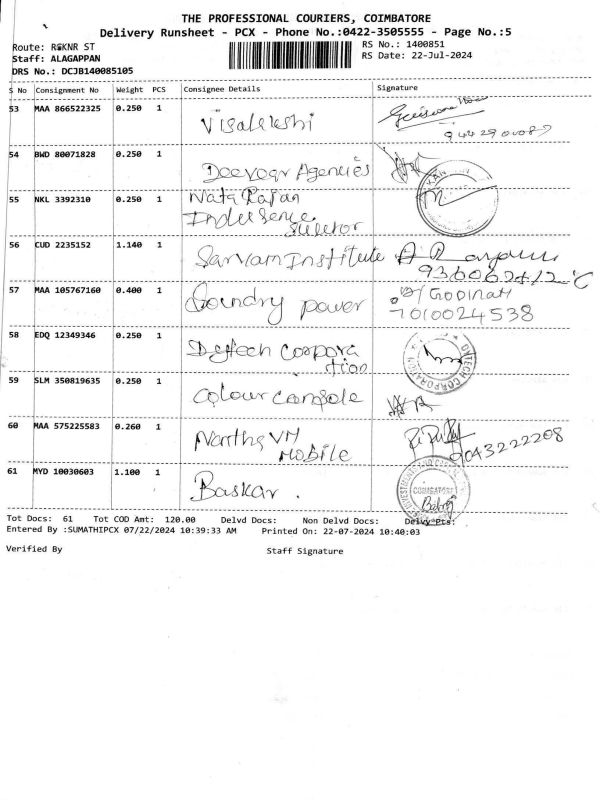 THE PROFESSIONAL COURIERS, COIMBATORE
Delivery Runsheet - PCX - Phone No.:0422-3505555 - Page No.:5
Route: RSKNR ST
RS No.: 1400851
Staff: ALAGAPPAN
RS Date: 22-Jul-2024
DRS No.: DCJB140085105
S No Consignment No Weight PCS Consignee Details Signature
53 MAA 866522325 0.250 1 Visalakshi
54 BWD 80071828 0.250 1 Deevogr Agencies
55 NKL 3392310 0.250 1 Nata Rajan
56 CUD 2235152 1.140 1 Sarvam Institute
57 MAA 105767160 0.400 1 Foundry power GOPINATH
7010024538
58 EDQ 12349346 0.250 1 Dytech Corpora
tion
DYTECH CORPORATION
59 SLM 350819635 0.250 1 Colour Console
60 MAA 575225583 0.260 1 VM
Mobile 9043222208
61 MYD 10030603 1.100 1 Baskar.
COIMBATORE
Tot Docs: 61 Tot COD Amt: 120.00 Delvd Docs: Non Delvd Docs: Delvy Pts:
Entered By :SUMATHIPCX 07/22/2024 10:39:33 AM Printed On: 22-07-2024 10:40:03
Verified By Staff Signature